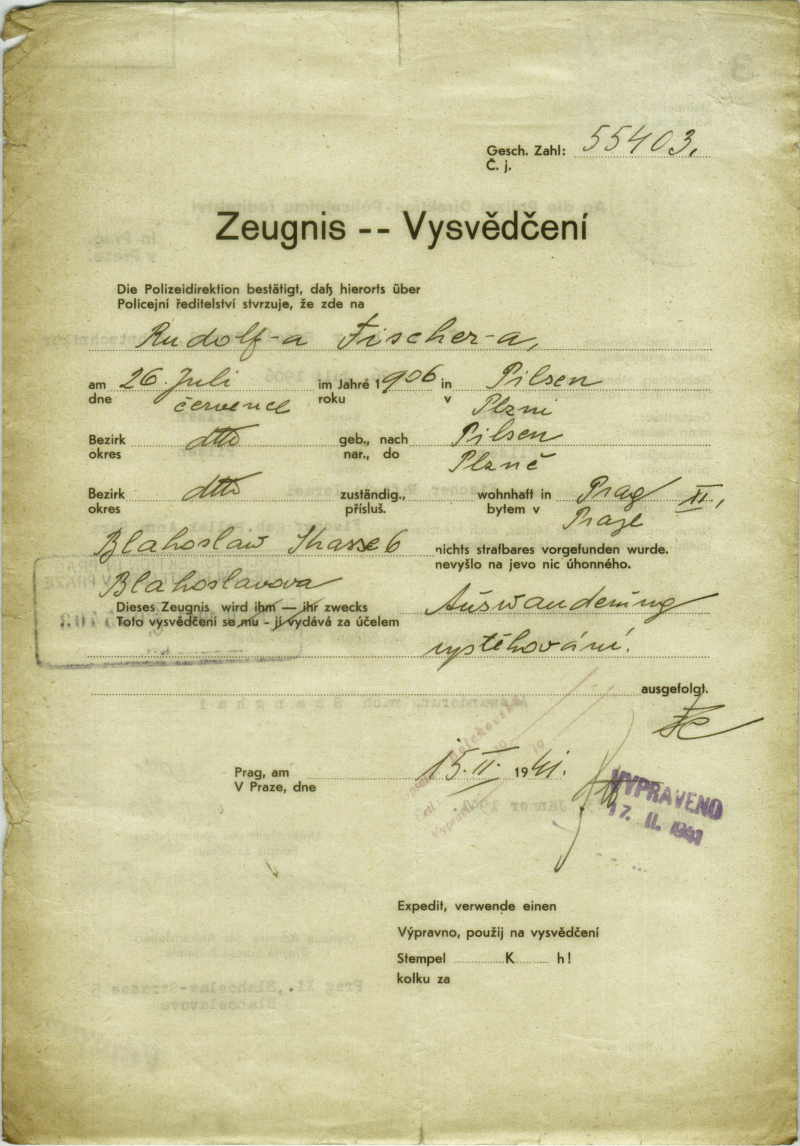 Gesch. Zahl: 55403.
Č. j.
Zeugnis -- Vysvědčení
Die Polizeidirektion bestätigt, daß hierorts über
Policejní ředitelství stvrzuje, že zde na
Rudolf-a Fischer-a,
am 26. Juli im Jahre 1906 in Pilsen
dne července roku v Plzni
Bezirk dtto geb., nach Pilsen
okres nar., do Plzně
Bezirk dtto zuständig., wohnhaft in Prag II,
okres přísluš. bytem v Praze
Blahoslaw Strasse 6 nichts strafbares vorgefunden wurde.
nevyšlo na jevo nic úhonného.
Blahoslavova
Dieses Zeugnis wird ihm — ihr zwecks Auswanderung
Toto vysvědčení se mu - jí vydává za účelem
vystěhování.
ausgefolgt.
Prag, am 15. II. 1941.
V Praze, dne
VYPRAVENO
17. II. 1941
Expedit, verwende einen
Výpravno, použij na vysvědčení
Stempel K h!
kolku za